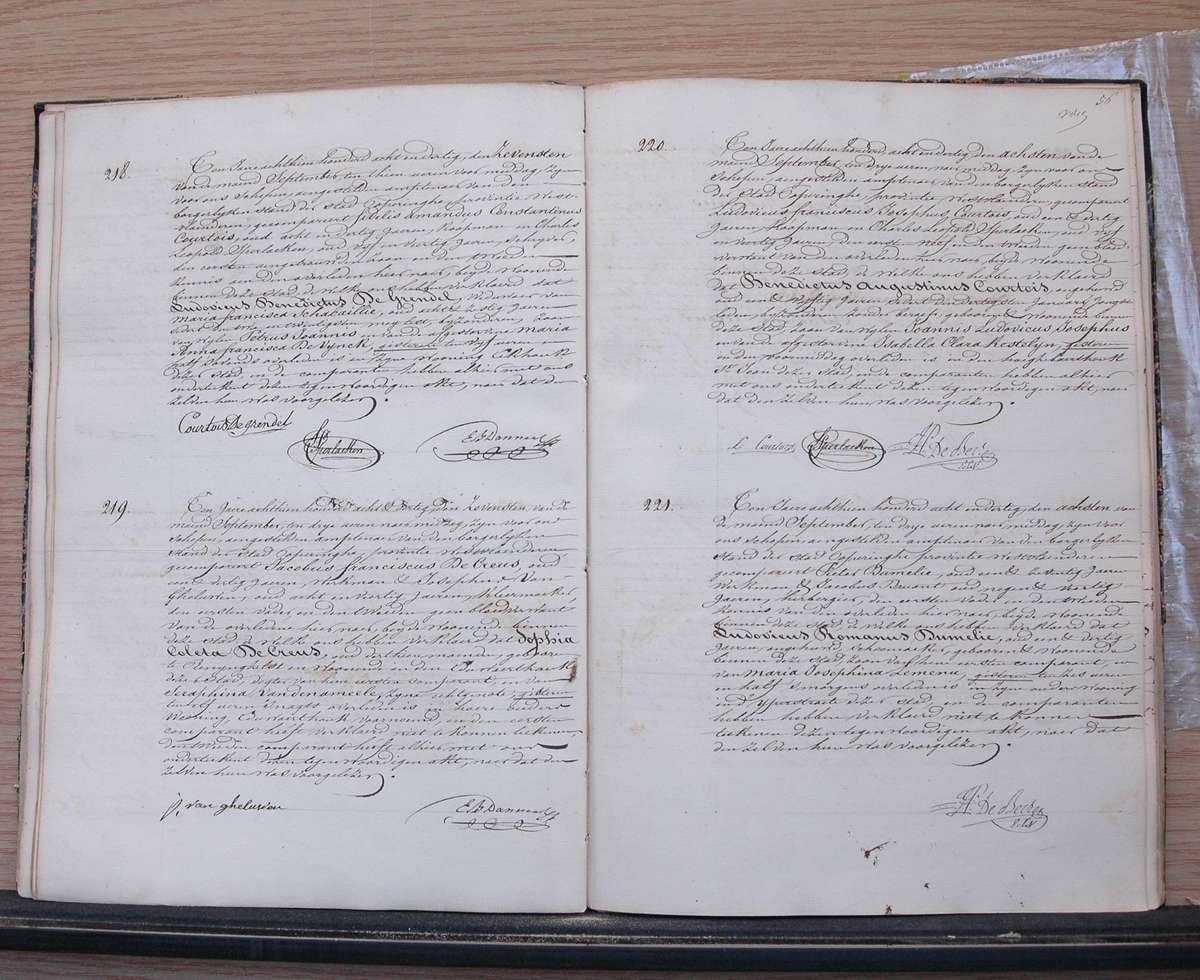 218.
Ten Jaere achthien honderd acht en dertig, den Zevensten
van de maend September ten thien ueren voor middag zyn
voor ons Schepen aengestelden amptenaer van den
borgerlyken stand der stad Poperinghe provintie West
vlaenderen, gecompareert fidelis amandus Constantinus
Courtois, oud acht en dertig Jaeren, koopman en Charles
Leopold Sperlaeken, oud vyf en veertig Jaeren, Schryver,
den eersten aengetrouwden zoon en den tweeden
kennis van den overleden hier naer, beyde woonende
binnen deze stad, de welke ons hebben verklaerd dat
Ludovicus Benedictus De Grendel, Weduwaer van
maria francisca Schabaillie, oud acht zestig Jaeren
van wylen Petrus Joannis, en van Jacoba maria
Anna francisca De Vynck, gisteren te vyf ueren en
half s'avonds overleden is in zyne wooning Eekhoek
dezer stad, en de comparanten hebben alhier met ons
onderteekent dezen tegenwoordigen akt, naer dat den
zelven hun was voorgelezen.
Courtois De Grendel
Sperlaeken
219.
Ten Jaere achthien honderd acht & dertig Den Zevensten van de
maend September, ten drye ueren naermiddag, zyn voor ons
Schepen, aengestelden amptenaer van den borgerlyken
Stand der Stad Poperinghe, provintie Westvlaenderen
gecompareert Jacobus franciscus De Creus, oud
eenendertig Jaeren, werkman & Josephus Van
Ghelewen, oud acht en veertig Jaeren,
den eersten vader en den tweeden geen bloedverwant
van de overleden hier naer, beyde woonende binnen
deze stad, de welke ons hebben verklaerd dat Sophia
Coleta De Creus, oud derthien maenden, geboren
te Reninghelst en woonende in den Couwaerthoek
dezer stad, dogter van den eersten comparant, en van
Seraphina Vandenameele, zyne echtgenote, gisteren
ten elf ueren s'nagts overleden is in haere ouders
Wooning Couwaerthoek voornoemd, en den eersten
comparant heeft verklaerd niet te konnen teekenen,
den tweeden comparant heeft alhier met ons
onderteekent dezen tegenwoordigen akt, naer dat den
zelven hun was voorgelezen.
J, van ghelewen
56
220.
Ten Jaere achthien honderd acht en dertig, Den achsten van de
maend September, ten drye ueren naer middag, zyn voor ons
Schepen, aengestelden amptenaer van den borgerlyken Stand
der Stad Poperinghe, provintie Westvlaenderen, gecompareert
Ludovicus franciscus Josephus Courtois, oud een & dertig
Jaeren, koopman en Charles Leopold Sperlaeken, oud vyf
en veertig Jaeren, den eersten neef en den tweeden geen bloed
verwant van den overleden hier naer, beyde woonende
binnen deze Stad, de welke ons hebben verklaerd
dat Benedictus Augustinus Courtois, ongehuwd
oud een & vyftig Jaeren
deze stad, zoon van wylen Joannis Ludovicus Josephus
en van Isabella Clara Kestelyn, gisteren
in den voormiddag overleden is in den
St Jean dezer Stad, en de comparanten hebben alhier
met ons onderteekent dezen tegenwoordigen akt, naer
dat den zelven hun was voorgelezen.
L Courtois
Sperlaeken
221.
Ten Jaere achthien honderd acht en dertig, den achsten van
de maend September, ten drye ueren naer middag, zyn voor
ons Schepen, aengestelden amptenaer van den borgerlyken
Stand der Stad Poperinghe provintie Westvlaenderen
gecompareert Petrus Dumelie, oud een & zeventig Jaeren
werkman & Jacobus oud negen & veertig
Jaeren, herbergier, den eersten vader en den tweeden
kennis van den overleden hier naer, beyde woonende
binnen deze Stad, de welke ons hebben verklaerd dat
Ludovicus Romanus Dumelie, oud een & dertig
Jaeren, ongehuwd, Schoenmaeker, geboren & woonende
binnen deze Stad, zoon van den eersten comparant, en
van Maria Josephina Lemena, gisteren ten zes ueren
en half s'morgens overleden is in zyne ouders wooning
in d'Yperstraete dezer stad, en de comparanten
hebben verklaerd niet te konnen
teekenen dezen tegenwoordigen akt, naer dat
den zelven hun was voorgelezen.